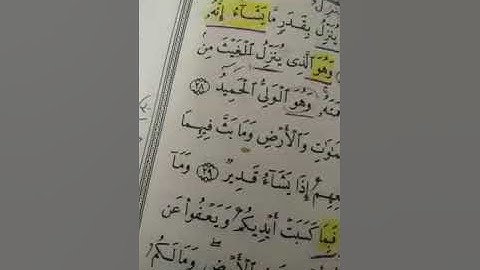 يُنَزِّلُ بِقَدَرٍ مَّا يَشَآءُ إِنَّهُۥ
وَهُوَ ٱلَّذِى يُنَزِّلُ ٱلْغَيْثَ مِنۢ
وَهُوَ ٱلْوَلِىُّ ٱلْحَمِيدُ ٢٨
وَٱلْأَرْضِ وَمَا بَثَّ فِيهِمَا
إِذَا يَشَآءُ قَدِيرٌ ٢٩ وَمَآ
فَبِمَا كَسَبَتْ أَيْدِيكُمْ وَيَعْفُوا۟ عَن
ٱلْأَرْضِ وَمَا لَكُم